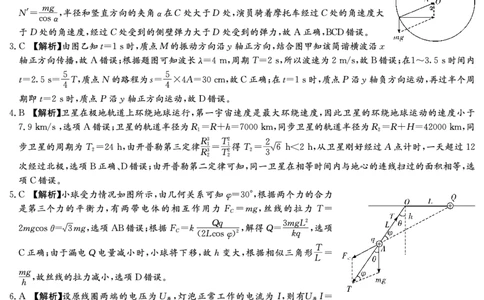 N'=mg/cos α,半径和竖直方向的夹角 α 在 C 处大于 D 处,演员骑着摩托车经过 C 处的角速度大
于 D 处的角速度,经过 C 处受到的侧壁弹力大于 D 处受到的弹力,故 A 正确,BCD错误。
3. C 【解析】由图乙知 t=1 s时,质点 M 的振动方向沿 y 轴正方向,结合图甲知该简谐横波沿 x
轴正方向传播,故 A 错误;根据题图可知波长 λ=4 m,周期 T=2 s,所以波速为 2 m/s,故 B 错误;在1~3.5 s时间内
t=2.5 s=5/4 T,质点 N 的路程为 s=5/4×4A=30 cm,故 C 正确;在 t=1 s时,质点 P 沿 y 轴负方向运动,再过半个周
期即 t=2 s时,质点 P 沿 y 轴正方向运动,故 D 错误。
4. B 【解析】卫星在极地轨道上环绕地球运行,第一宇宙速度是最大环绕速度,因此卫星的环绕地球运动的速度小于
7.9 km/s,选项 A 错误;卫星的轨道半径为 R₁=R+h=7000 km,同步卫星的轨道半径为 R₂=R+H=42000 km,同
步卫星的周期为 T₂=24 h,由开普勒第三定律 R₁³/R₂³=T₁²/T₂² 得 T₁=2/3 √6 h<2 h,从卫星刚好经过 A 点计时,一天超过 12
次经过北极,选项 B 正确、D 错误;由开普勒第二定律可知,同一卫星在相等时间内与地心的连线扫过的面积相等,选
项 C 错误。
5. C 【解析】小球受力情况如图所示,由几何关系可知 φ=30°,根据两个力的合力
是第三个力的平衡力,有两带电体的相互作用力 F_C=mg,丝线的拉力 T=
2mgcos θ=√3 mg,选项 AB 错误;根据 F_C=k Qq/(2Lcos φ)²,解得 Q=3mgL²/kq,选项
C 正确;由于漏电 Q 电量减小时,小球将下移,故 h 变大,根据相似三角形 T/L=
mg/h,故丝线的拉力减小,选项 D 错误。
6. A 【解析】设原线圈两端的电压为
mg
O
L
Q
T
h
θ
L
q
A
φ
F_C
θ
T
mg